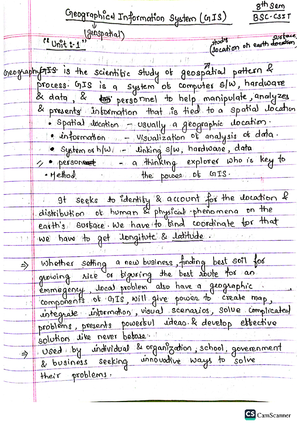 8th Sem
Geographical Information System (GIS) BSC-CSIT
(geospatial)
study surface
"Unit:-1" (location on earth location)
Geography GIS is the scientific study of geospatial pattern &
process. GIS is a system of computer s/w, hardware
& data, & personnel to help manipulate, analyzes
& presents information that is tied to a spatial location
• Spatial location - usually a geographic location.
• information - Visualization of analysis of data.
• System or h/w. - linking s/w, hardware, data
• personnel - a thinking explorer who is key to
• Method the power of GIS.
It seeks to identify & account for the location &
distribution of human & physical phenomena on the
earth's surface. We have to bind coordinate for that
we have to get longitute & latitude.
⇒ Whether setting a new business, finding best soil for
growing rice or figuring the best route for an
emmergency, local problem also have a geographic
components of GIS, will give power to create map,
integrate information, visual scenarios, solve complicated
problems, presents powerful ideas & develop effective
solution like never before.
⇒ Used by individual & organization, school, government
& business seeking innovative ways to solve
their problems.
CS CamScanner